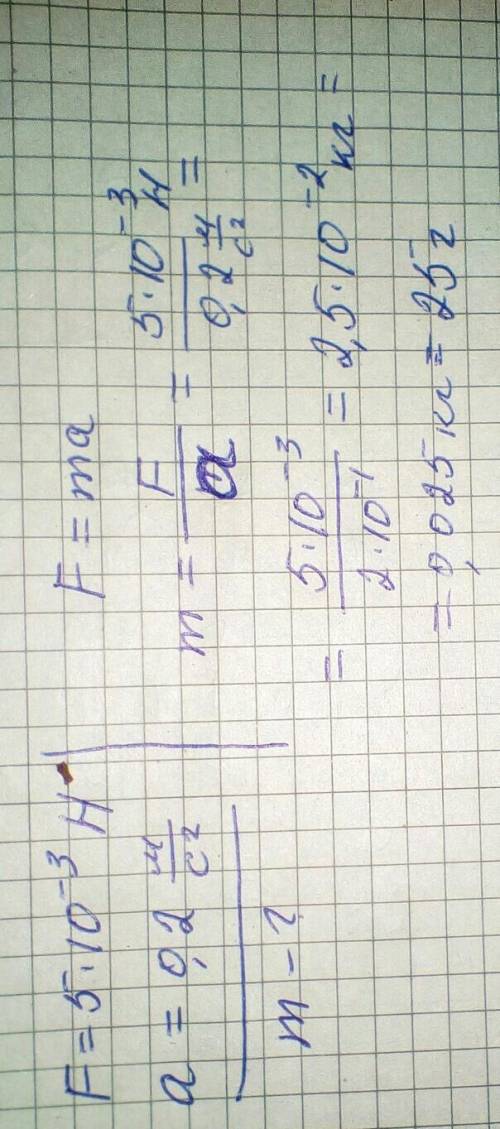 F = 5·10⁻³ Н
a = 0,2 м/с²
m - ?
F = ma
m = F/a = 5·10⁻³ Н / 0,2 м/с² =
= 5·10⁻³ / 2·10⁻¹ = 2,5·10⁻² кг =
= 0,025 кг = 25 г